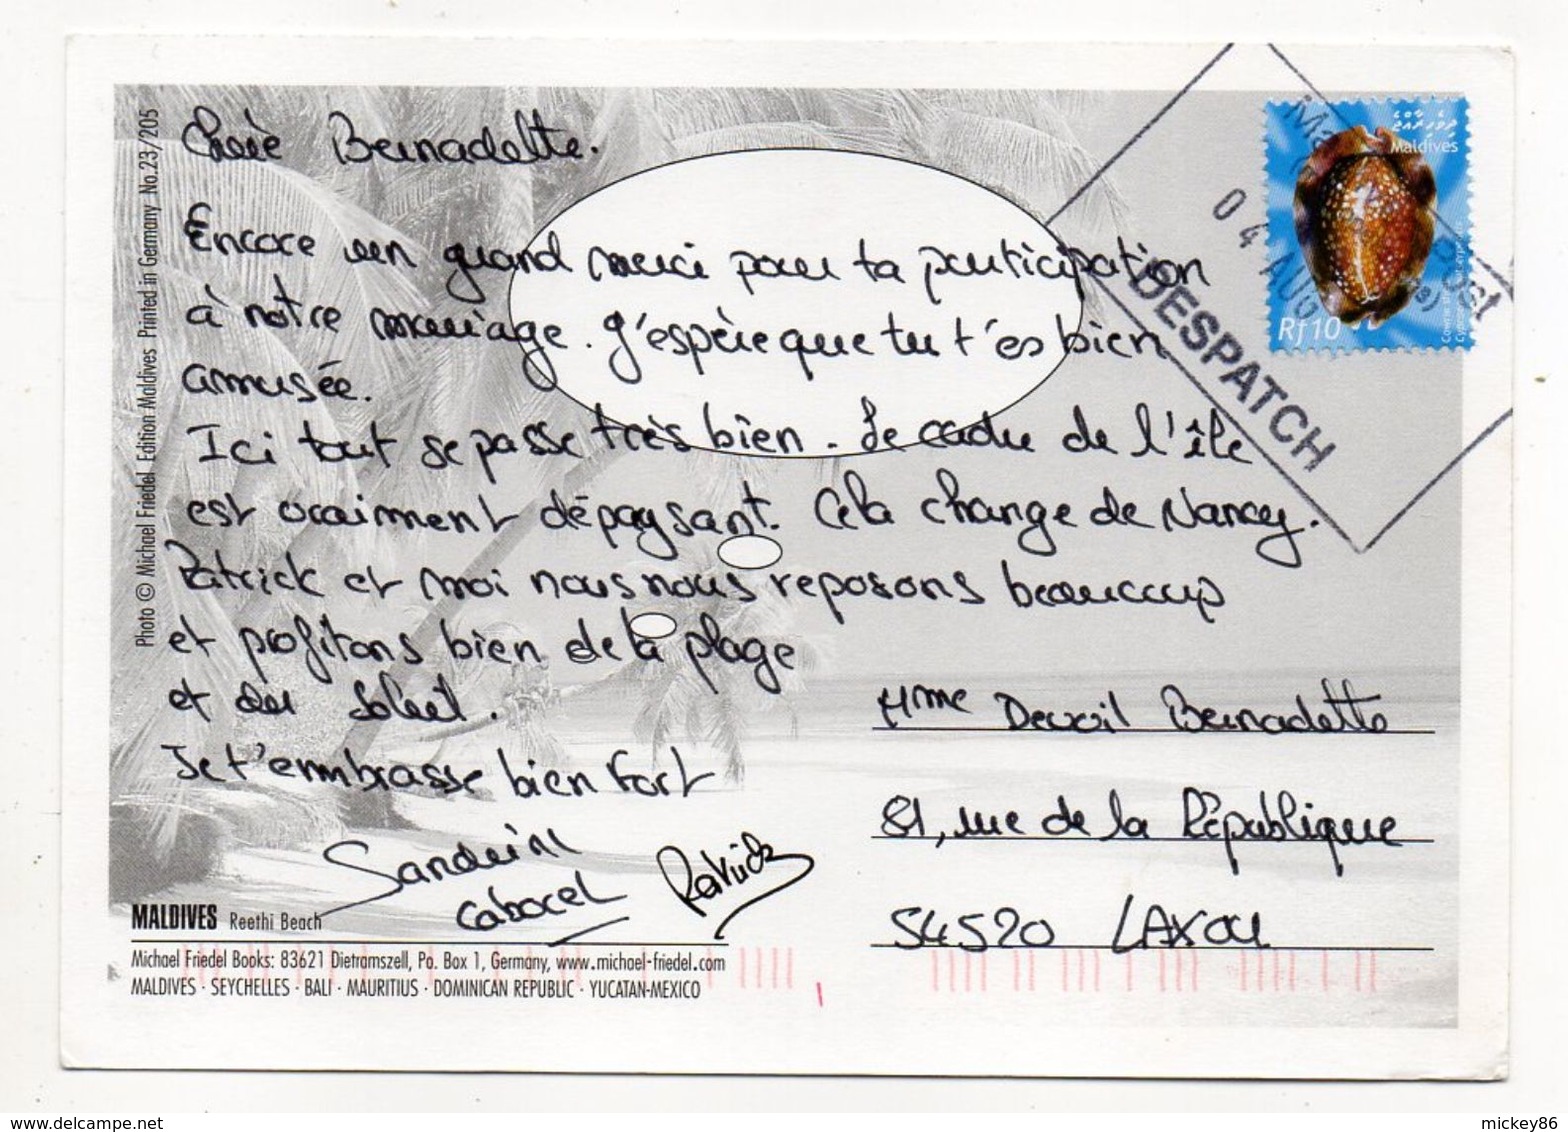 Chère Bernadette.
Encore un grand merci pour ta participation
à notre mariage. J'espère que tu t'es bien
amusée.
Ici tout se passe très bien. Le cadre de l'île
est vraiment dépaysant. Cela change de Nancy.
Patrick et moi nous nous reposons beaucoup
et profitons bien de la plage
et du soleil.
Je t'embrasse bien fort
Sandrine
Patrick
Mme Devoil Bernadette
81, rue de la République
54520 LAXOU
Photo © Michael Friedel Edition Maldives Printed in Germany No.23/205
MALDIVES Reethi Beach
Michael Friedel Books: 83621 Dietramszell, Po. Box 1, Germany, www.michael-friedel.com
MALDIVES · SEYCHELLES · BALI · MAURITIUS · DOMINICAN REPUBLIC · YUCATAN-MEXICO
Maldives
Rf10
04 AUG
Post
DESPATCH
mickey86